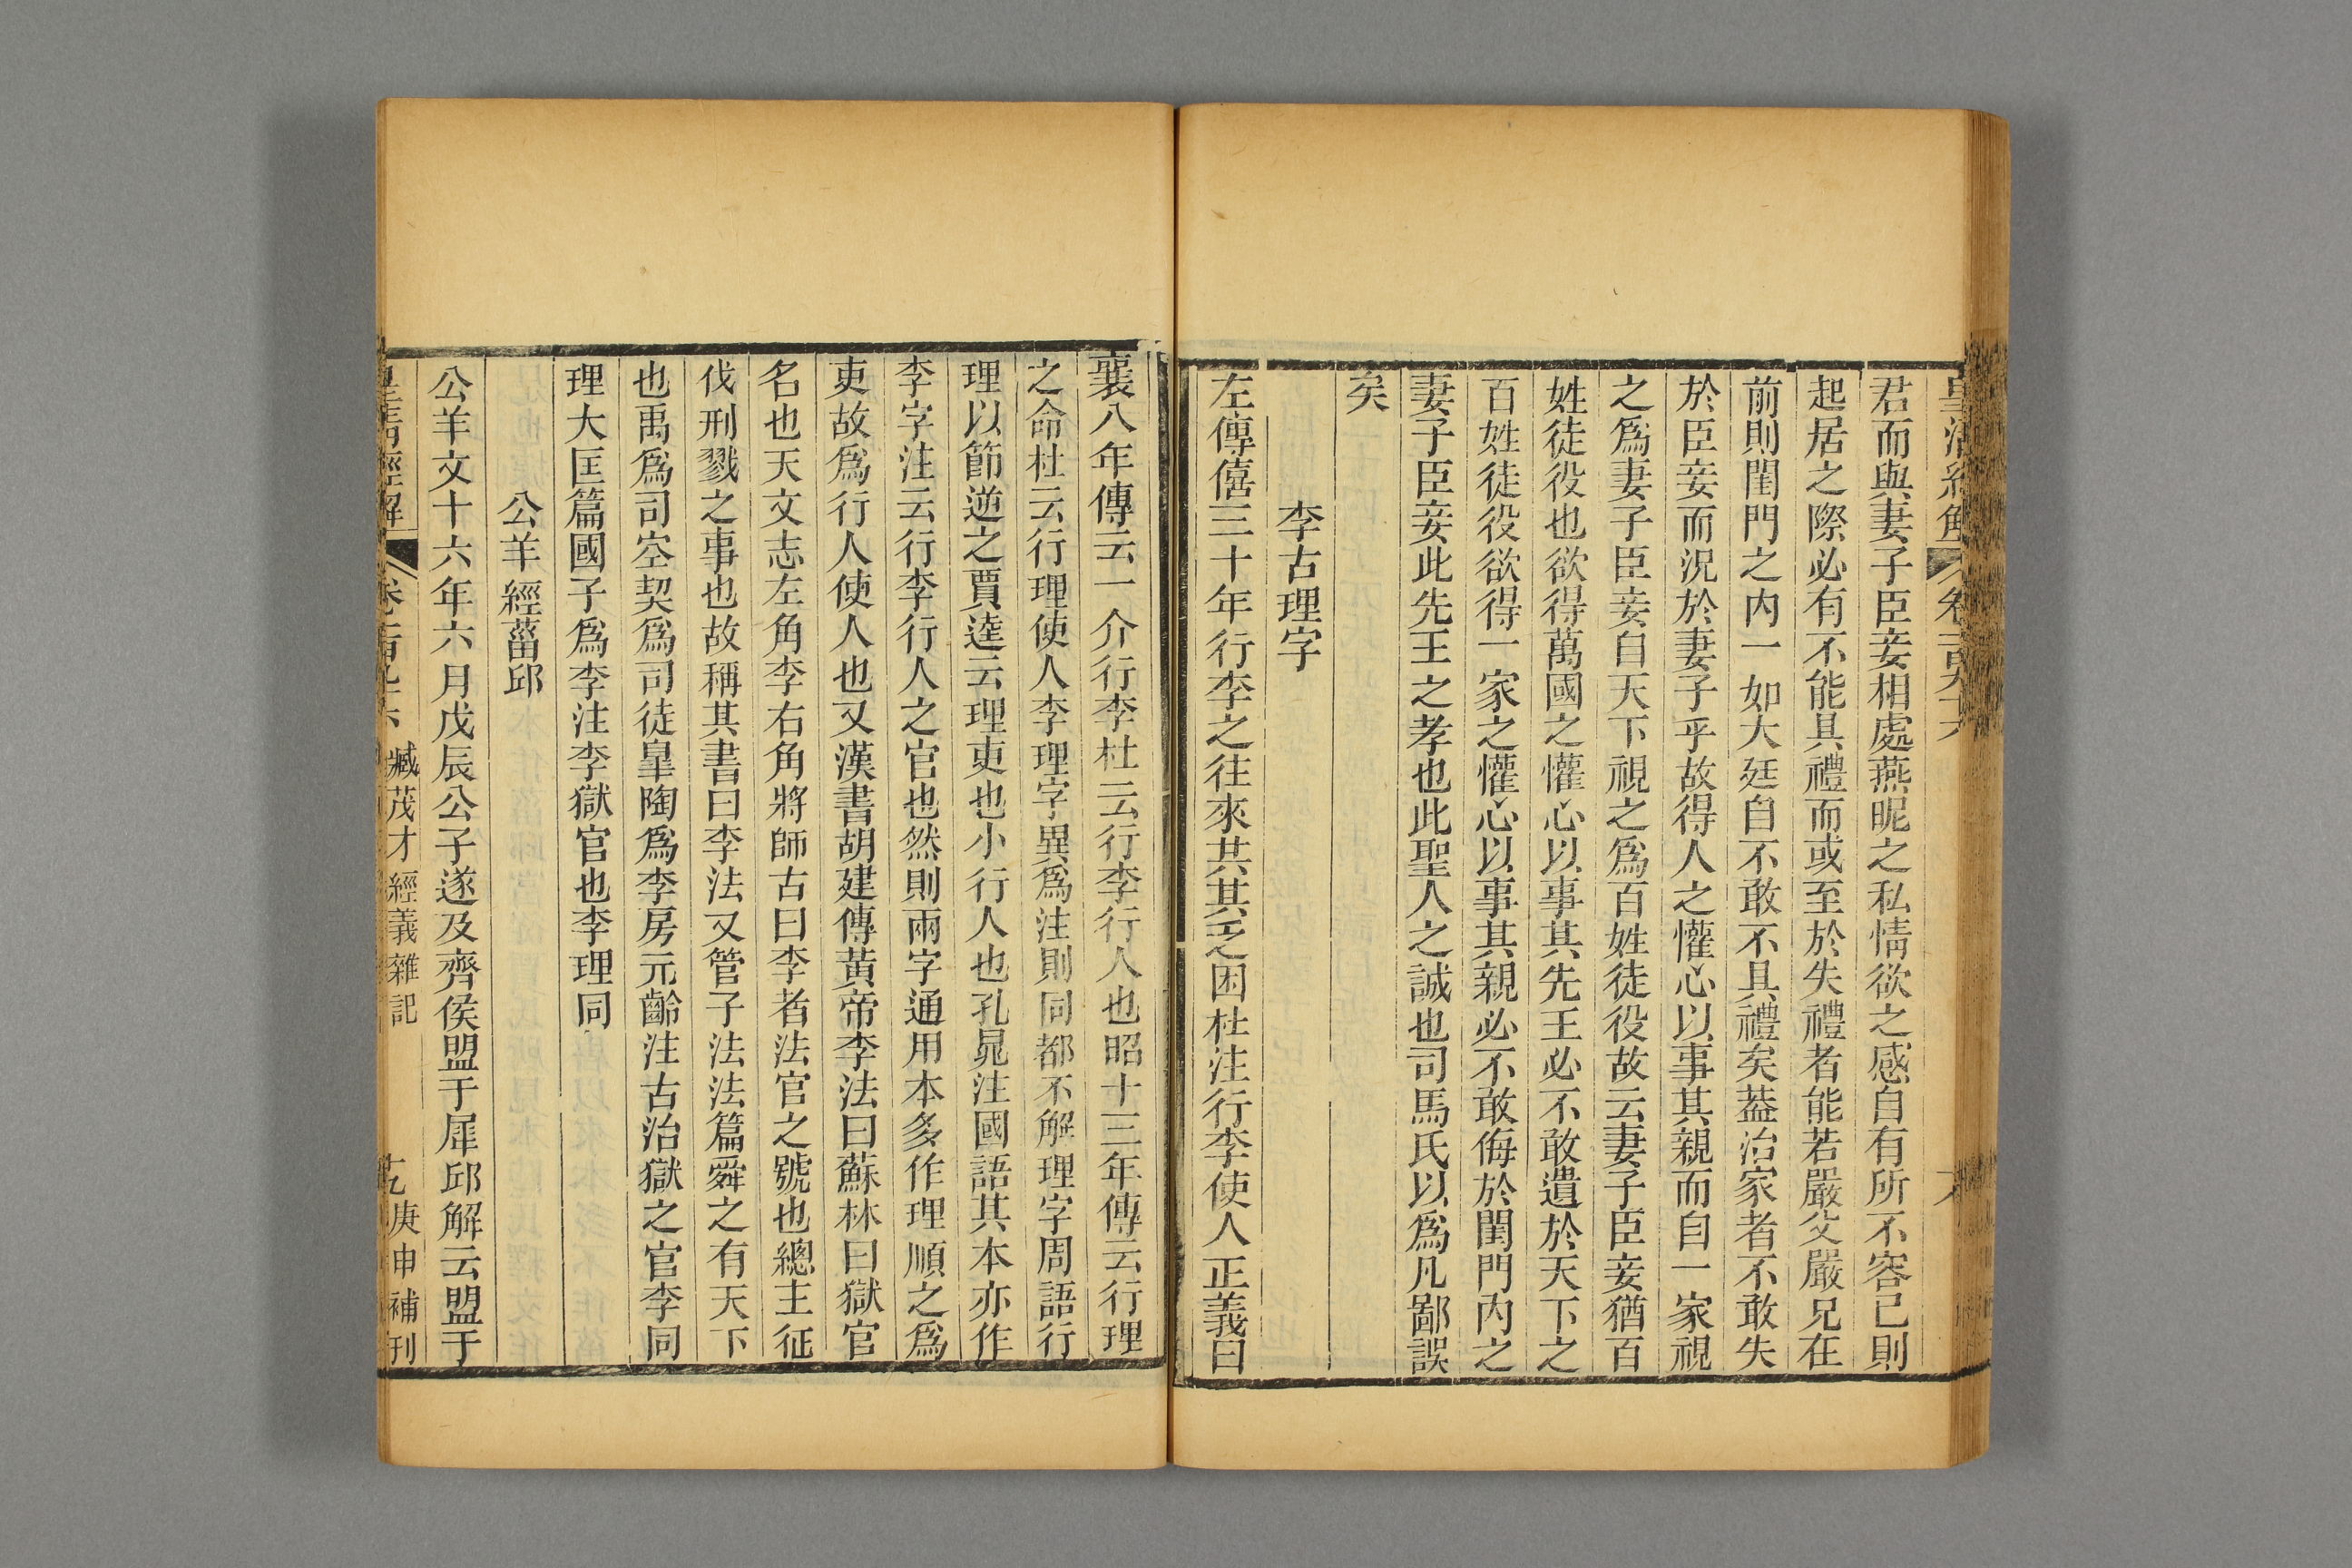 君而與妻子臣妾相處燕昵之私情欲之感自有所不容已則
起居之際必有不能具禮而或至於失禮者能若嚴父嚴兄在
前則閨門之内一如大廷自不敢不具禮矣葢治家者不敢失
於臣妾而況於妻子乎故得人之懽心以事其親而自一家視
之爲妻子臣妾自天下視之爲百姓徒役故云妻子臣妾猶百
姓徒役也欲得萬國之懽心以事其先王必不敢遺於天下之
百姓徒役欲得一家之懽心以事其親必不敢侮於閨門内之
妻子臣妾此先王之孝也此聖人之誠也司馬氏以爲凡鄙誤
矣
李古理字
左傳僖三十年行李之往來共其乏困杜注行李使人正義曰
襄八年傳云一介行李杜云行李行人也昭十三年傳云行理
之命杜云行理使人李理字異爲注則同都不解理字周語行
理以節逆之賈逵云理吏也小行人也孔晁注國語其本亦作
李字注云行李行人之官也然則兩字通用本多作理順之爲
吏故爲行人使人也又漢書胡建傳黄帝李法曰蘇林曰獄官
名也天文志左角李右角將師古曰李者法官之號也總主征
伐刑戮之事也故稱其書曰李法又管子法法篇舜之有天下
也禹爲司空契爲司徒臯陶爲李房元齡注古治獄之官李同
理大匡篇國子爲李注李獄官也李理同
公羊經菑邱
公羊文十六年六月戊辰公子遂及齊侯盟于犀邱解云盟于
皇清經解 卷 臧茂才經義雜記 庚申補刊